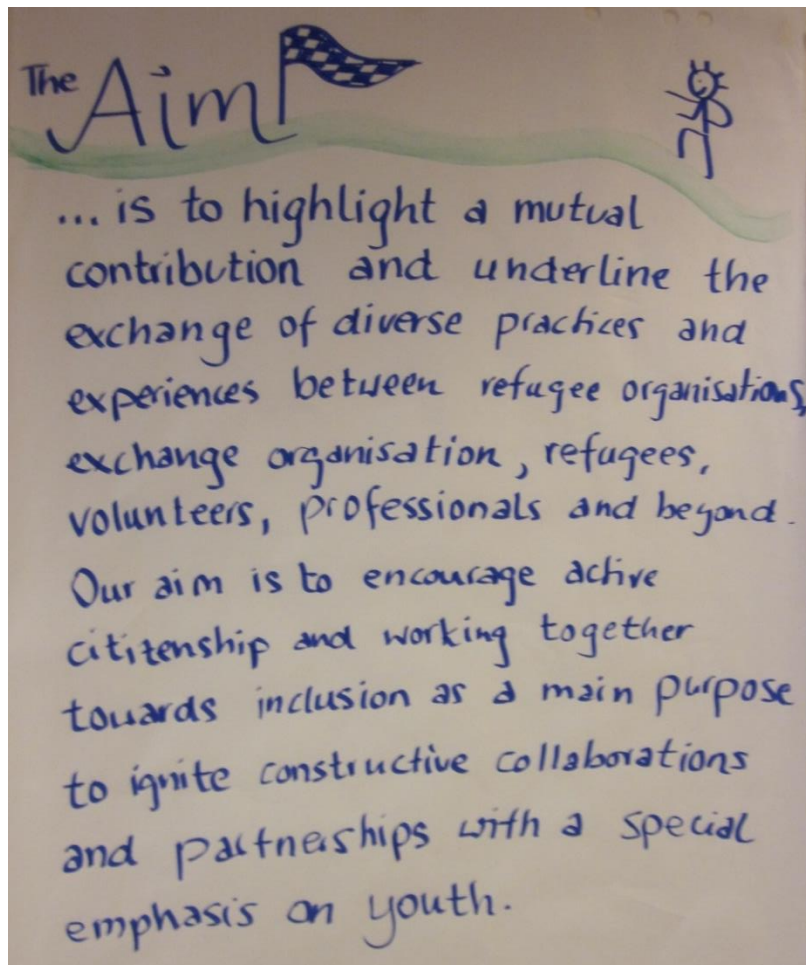 The Aim
... is to highlight a mutual
contribution and underline the
exchange of diverse practices and
experiences between refugee organisations,
exchange organisation, refugees,
volunteers, professionals and beyond.
Our aim is to encourage active
cititenship and working together
towards inclusion as a main purpose
to ignite constructive collaborations
and partnerships with a special
emphasis on youth.